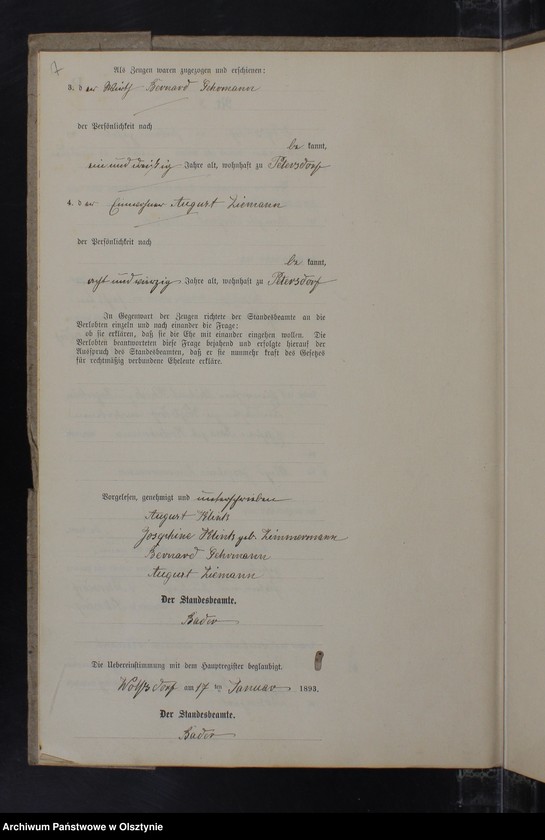 Als Zeugen waren zugezogen und erschienen:
3. der Wirth Bernard Gehrmann
der Persönlichkeit nach
be kannt,
ein und dreißig Jahre alt, wohnhaft zu Petersdorf
4. der Einwohner August Ziemann
der Persönlichkeit nach
be kannt,
acht und vierzig Jahre alt, wohnhaft zu Petersdorf
In Gegenwart der Zeugen richtete der Standesbeamte an die
Verlobten einzeln und nach einander die Frage:
ob sie erklären, daß sie die Ehe mit einander eingehen wollen. Die
Verlobten beantworteten diese Frage bejahend und erfolgte hierauf der
Ausspruch des Standesbeamten, daß er sie nunmehr kraft des Gesetzes
für rechtmäßig verbundene Eheleute erkläre.
Vorgelesen, genehmigt und unterschrieben
August Klink
Josephine Klink geb. Zimmermann
Bernard Gehrmann
August Ziemann
Der Standesbeamte.
Bader
Die Uebereinstimmung mit dem Hauptregister beglaubigt.
Wolfsdorf am 17 ten Januar 1893.
Der Standesbeamte.
Bader
Archiwum Państwowe w Olsztynie